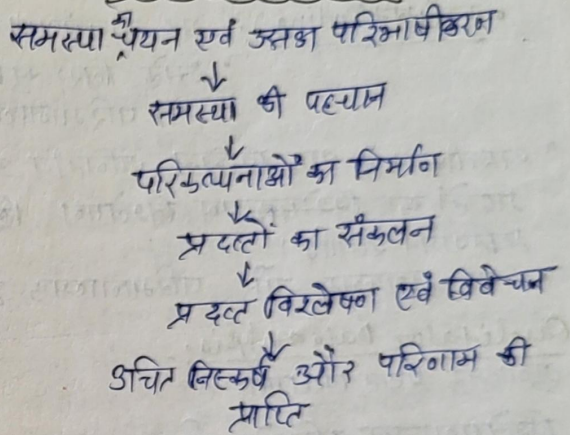 समस्या का चयन एवं उसका परिभाषीकरण
↓
समस्या की पहचान
↓
परिकल्पनाओं का निर्माण
↓
प्रदत्तों का संकलन
↓
प्रदत्त विश्लेषण एवं विवेचन
↓
उचित निष्कर्ष और परिणाम की
प्राप्ति